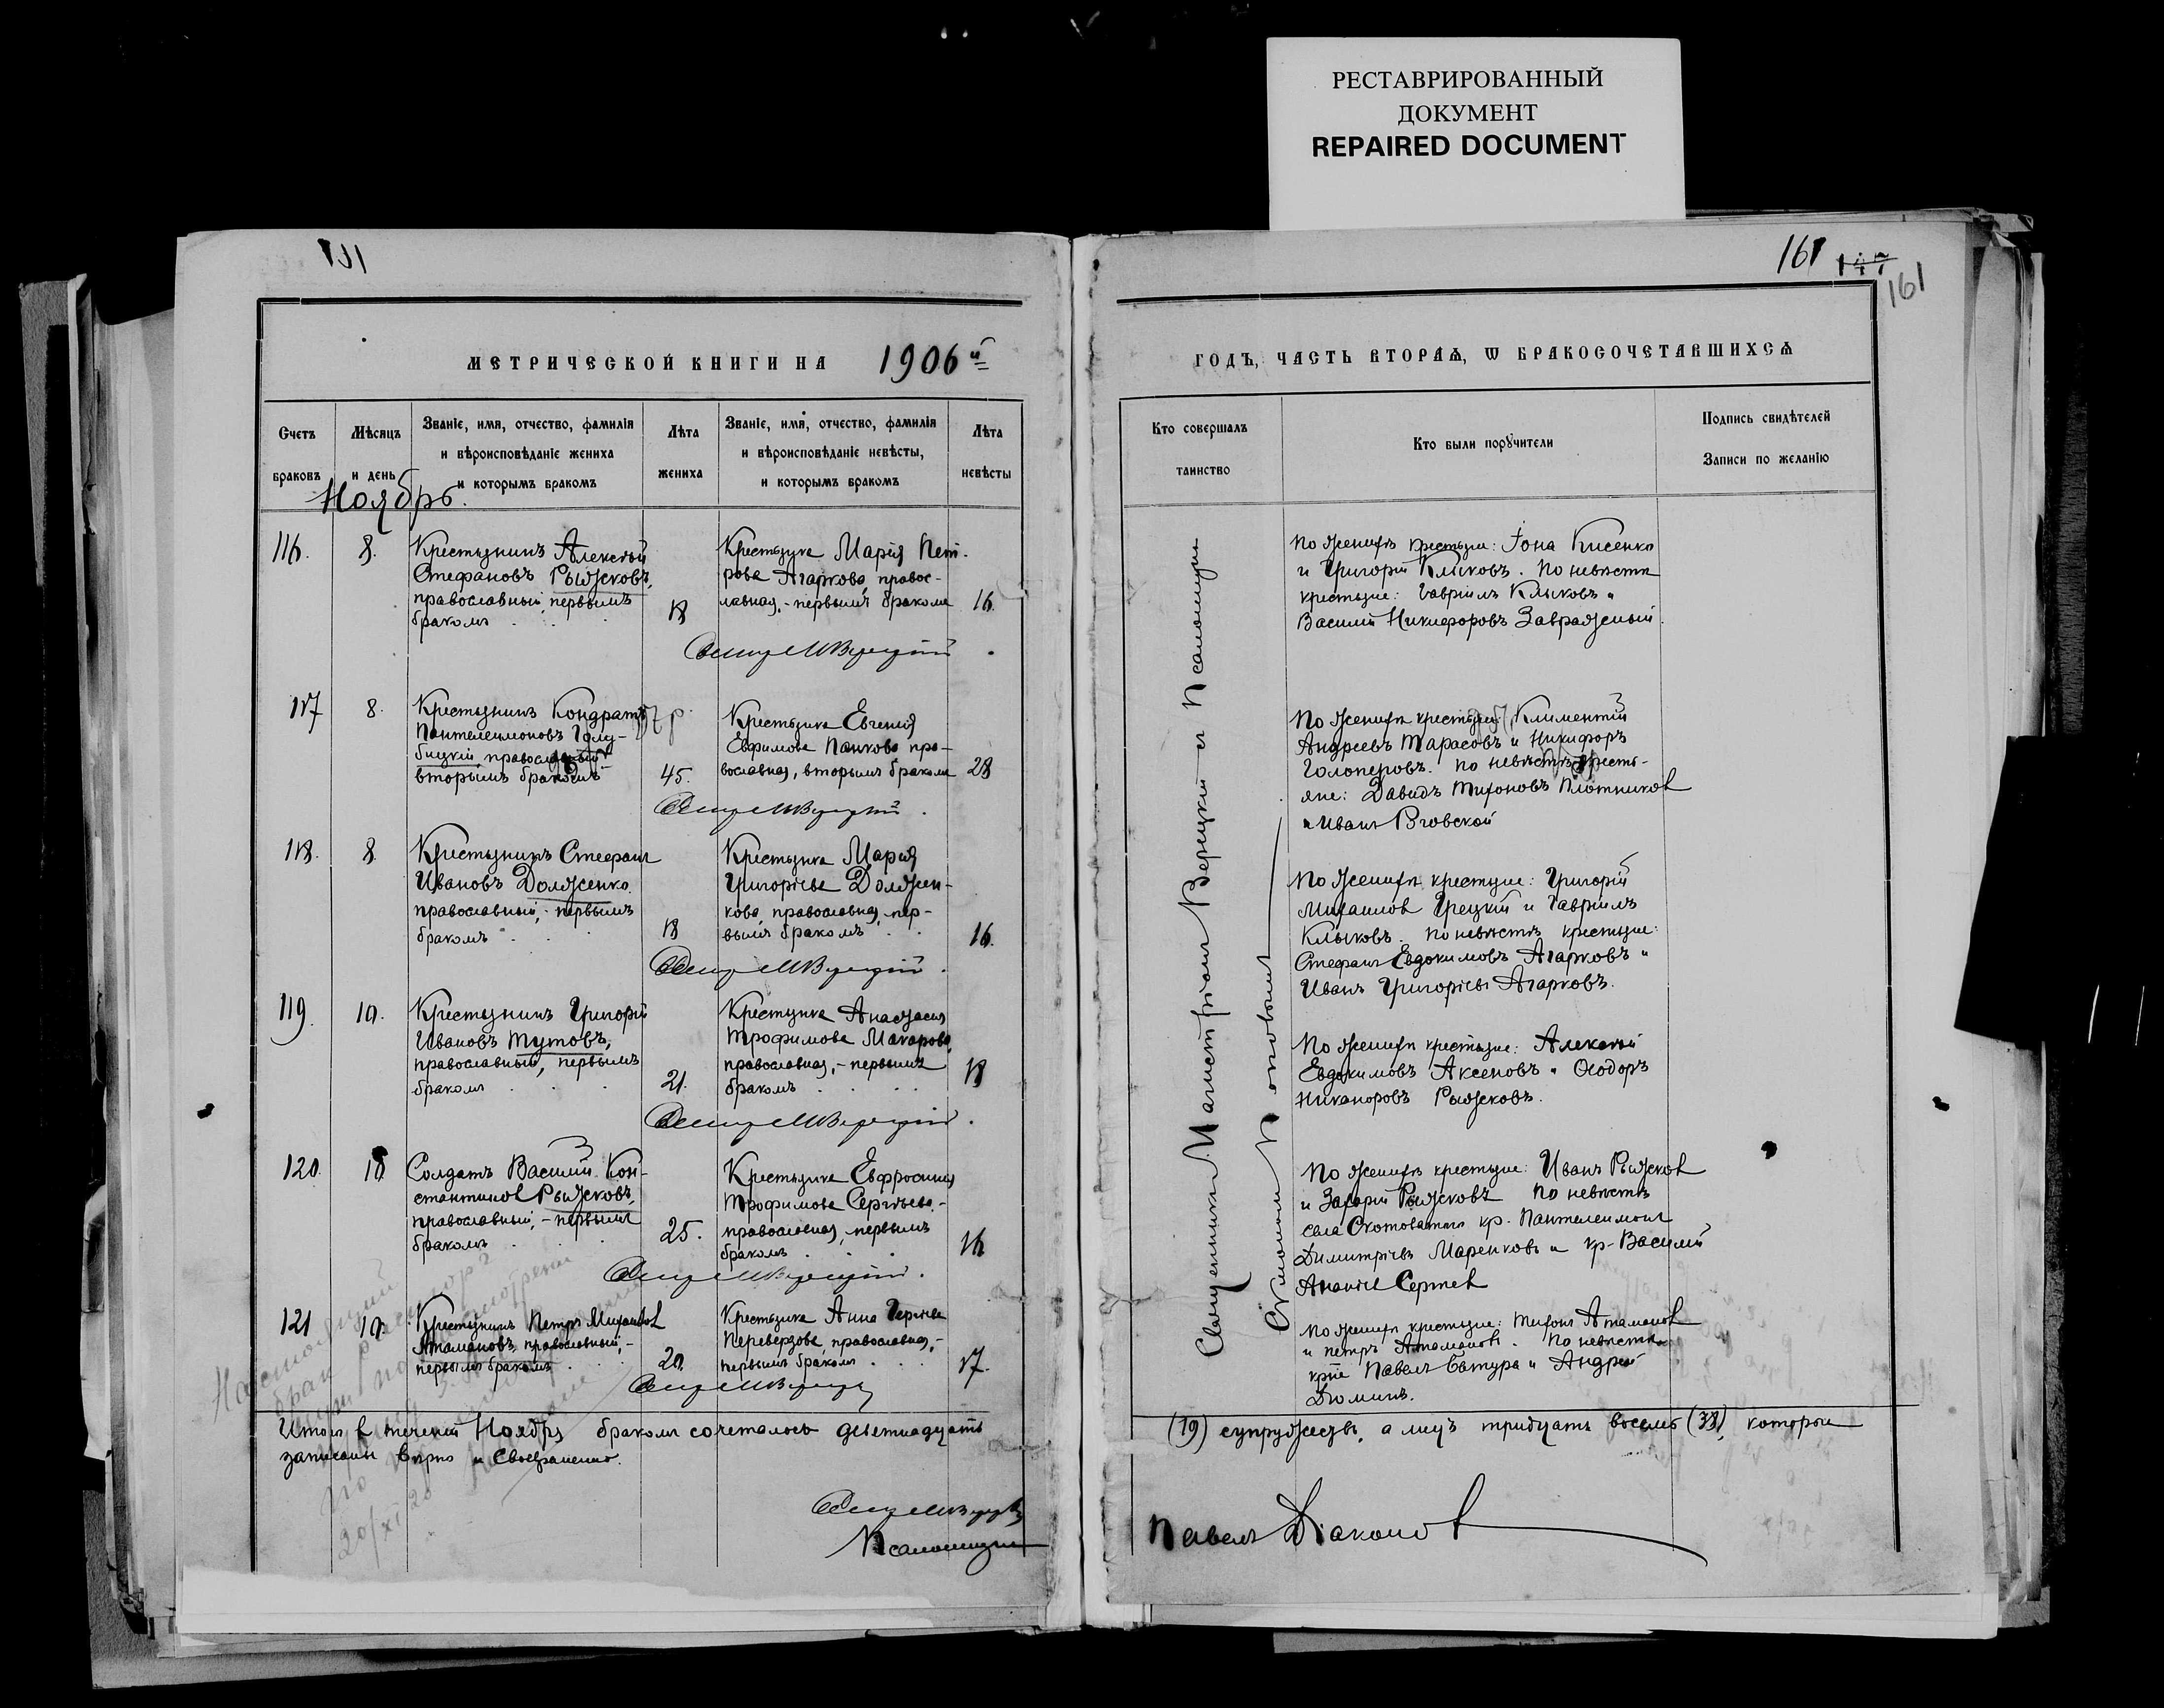 РЕСТАВРИРОВАННЫЙ
ДОКУМЕНТ
REPAIRED DOCUMENT
161
147
161
МЕТРИЧЕСКОЙ КНИГИ НА 1906й
Счетъ браковъ
Мѣсяцъ и день
Званіе, имя, отчество, фамилія
и вѣроисповѣданіе жениха
и которымъ бракомъ
Лѣта жениха
Званіе, имя, отчество, фамилія
и вѣроисповѣданіе невѣсты,
и которымъ бракомъ
Лѣта невѣсты
Ноябрь.
116. 8.
Крестьянинъ Алексѣй
Стефановъ Рыжковъ,
православный, первымъ
бракомъ
18
Крестьянка Марія Пет-
рова Агаркова, правос-
лавная, - первымъ бракомъ
16.
117 8.
Крестьянинъ Кондратъ
Пантелеимоновъ Голу-
бицкій, православный
вторымъ бракомъ
45.
Крестьянка Евгенія
Евфимова Панкова пра-
вославная, вторымъ бракомъ
28
118. 8.
Крестьянинъ Стефанъ
Ивановъ Долженко
православный, - первымъ
бракомъ
18
Крестьянка Марія
Григорьева Должен-
кова, православная, пер-
вымъ бракомъ
16.
119. 10.
Крестьянинъ Григорій
Ивановъ Тутовъ,
православный, первымъ
бракомъ
21.
Крестьянка Анастасія
Трофимова Макарова,
православная, - первымъ
бракомъ
18
120. 10
Солдатъ Василій Кон-
стантиновъ Рыжковъ,
православный, - первымъ
бракомъ
25.
Крестьянка Евфросинія
Трофимова Сергѣева, -
православная, первымъ
бракомъ
16
121 10.
Крестьянинъ Петръ Михайловъ
Атамановъ, православный, -
первымъ бракомъ
20.
Крестьянка Анна
Переверзова, православная, -
первымъ бракомъ
17.
Итого в течении Ноября бракомъ сочеталось девятнадцать
записаны вѣрно и своевременно.
Псаломщикъ
ГОДЪ, ЧАСТЬ ВТОРАѦ, Ѡ БРАКОСОЧЕТАВШИХСѦ
Кто совершалъ
таинство
Кто были поручители
Подпись свидѣтелей
Записи по желанію
Священникъ Верецкій съ Псаломщикомъ
По женихѣ крестьяне: Іона Кисенко
и Григорій Клыковъ. По невѣстѣ
крестьяне: Гавріилъ Клыковъ и
Василій Никифоровъ Завражный.
По женихѣ крестьяне: Климентій
Андреевъ Тарасовъ и Никифоръ
Голоперовъ. По невѣстѣ кресть-
яне: Давидъ Тихоновъ Плотниковъ
и Иванъ
По женихѣ крестьяне: Григорій
Михаиловъ Грецкій и Гавріилъ
Клыковъ. По невѣстѣ крестьяне:
Стефанъ Евдокимовъ Агарковъ и
Иванъ Григорьевъ Агарковъ.
По женихѣ крестьяне: Алексѣй
Евдокимовъ Аксеновъ и Ѳеодоръ
Никаноровъ Рыжковъ.
По женихѣ крестьяне: Иванъ Рыжковъ
и Захарій Рыжковъ По невѣстѣ
села Скотоватаго кр. Пантелеимонъ
Димитріевъ Маренковъ и кр. Василій
Ананіев
По женихѣ крестьяне: Тихонъ Атамановъ
и Петръ Атамановъ. По невѣстѣ
Павелъ Батура и Андрей
Дюминъ.
(19) супружествъ, а лицъ тридцать восемь (38), которыи
Павелъ Діаконовъ